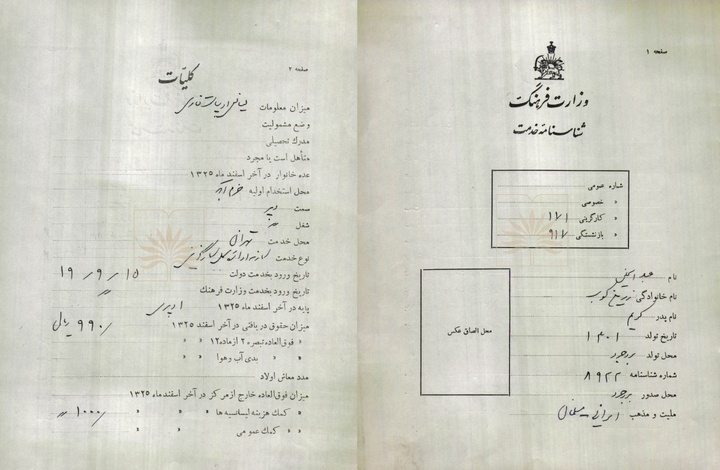 صفحه ۱
وزارت فرهنگ
شناسنامه خدمت
شماره عمومی
« خصوصی
« کارگزینی ۱۷۱
« بازنشستگی ۹۱۷
محل الصاق عکس
نام عبدالحسین
نام خانوادگی زرین کوب
نام پدر کریم
تاریخ تولد ۱۳۰۱
محل تولد بروجرد
شماره شناسنامه ۸۹۲۲
محل صدور بروجرد
ملیت و مذهب ایرانی - مسلمان
صفحه ۲
کلیّات
میزان معلومات لیسانس ادبیات فارسی
وضع مشمولیت
مدرک تحصیلی
متأهل است یا مجرد
عده خانوار در آخر اسفند ماه ۱۳۲۵
محل استخدام اولیه خرم آباد
سمت دبیر
شغل «
محل خدمت تهران
نوع خدمت
تاریخ ورود بخدمت دولت ۱۹/۹/۱۵
تاریخ ورود بخدمت وزارت فرهنگ «
پایه در آخر اسفند ماه ۱۳۲۵ ۱ دبیری
میزان حقوق دریافتی در آخر اسفند ۱۳۲۵ ۹۹۰/ ریال
« فوق‌العاده تبصره ۲ از ماده ۱۲ « «
« « بدی آب و هوا « «
مدد معاش اولاد
میزان فوق‌العاده خارج از مرکز در آخر اسفند ماه ۱۳۲۵
« کمک هزینه لیسانسیه ها « « « ۱۰۰۰/ «
« « کمک عمومی « « «